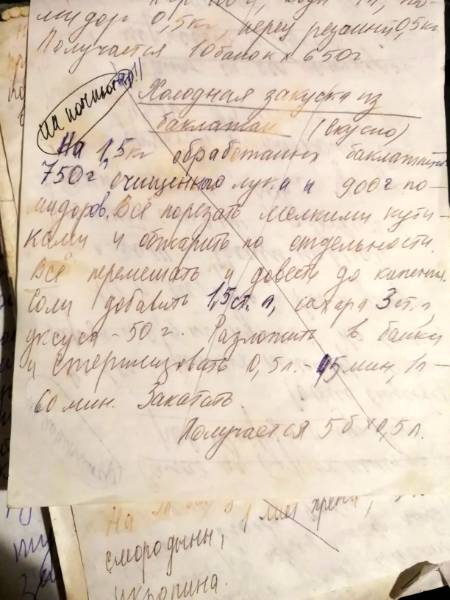 мидор 0,5кг, перец резаний 0,5кг
Получается 10 банок х 650г
Холодная закуска из
баклажан (вкусно)
На 1,5кг обработаних баклажанов
750г очищенного лука и 900г по-
мидоров. Всё порезать мелкими куби-
ками и обжарить по отдельности.
Всё перемешать и довести до кипения.
Соли добавить 1,5ст.л, сахара 3ст.л
уксуса - 50г. Разложить в банки
и стерилизовать 0,5л. - 45мин, 1л-
60мин. Закатать
Получается 5б х 0,5л.
На
хрена,
смородины,
укропина.